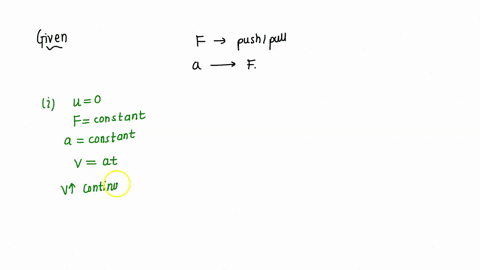 Given
F → push/pull
a → F.
(i) u = 0
F = constant
a = constant
v = at
v↑ continu